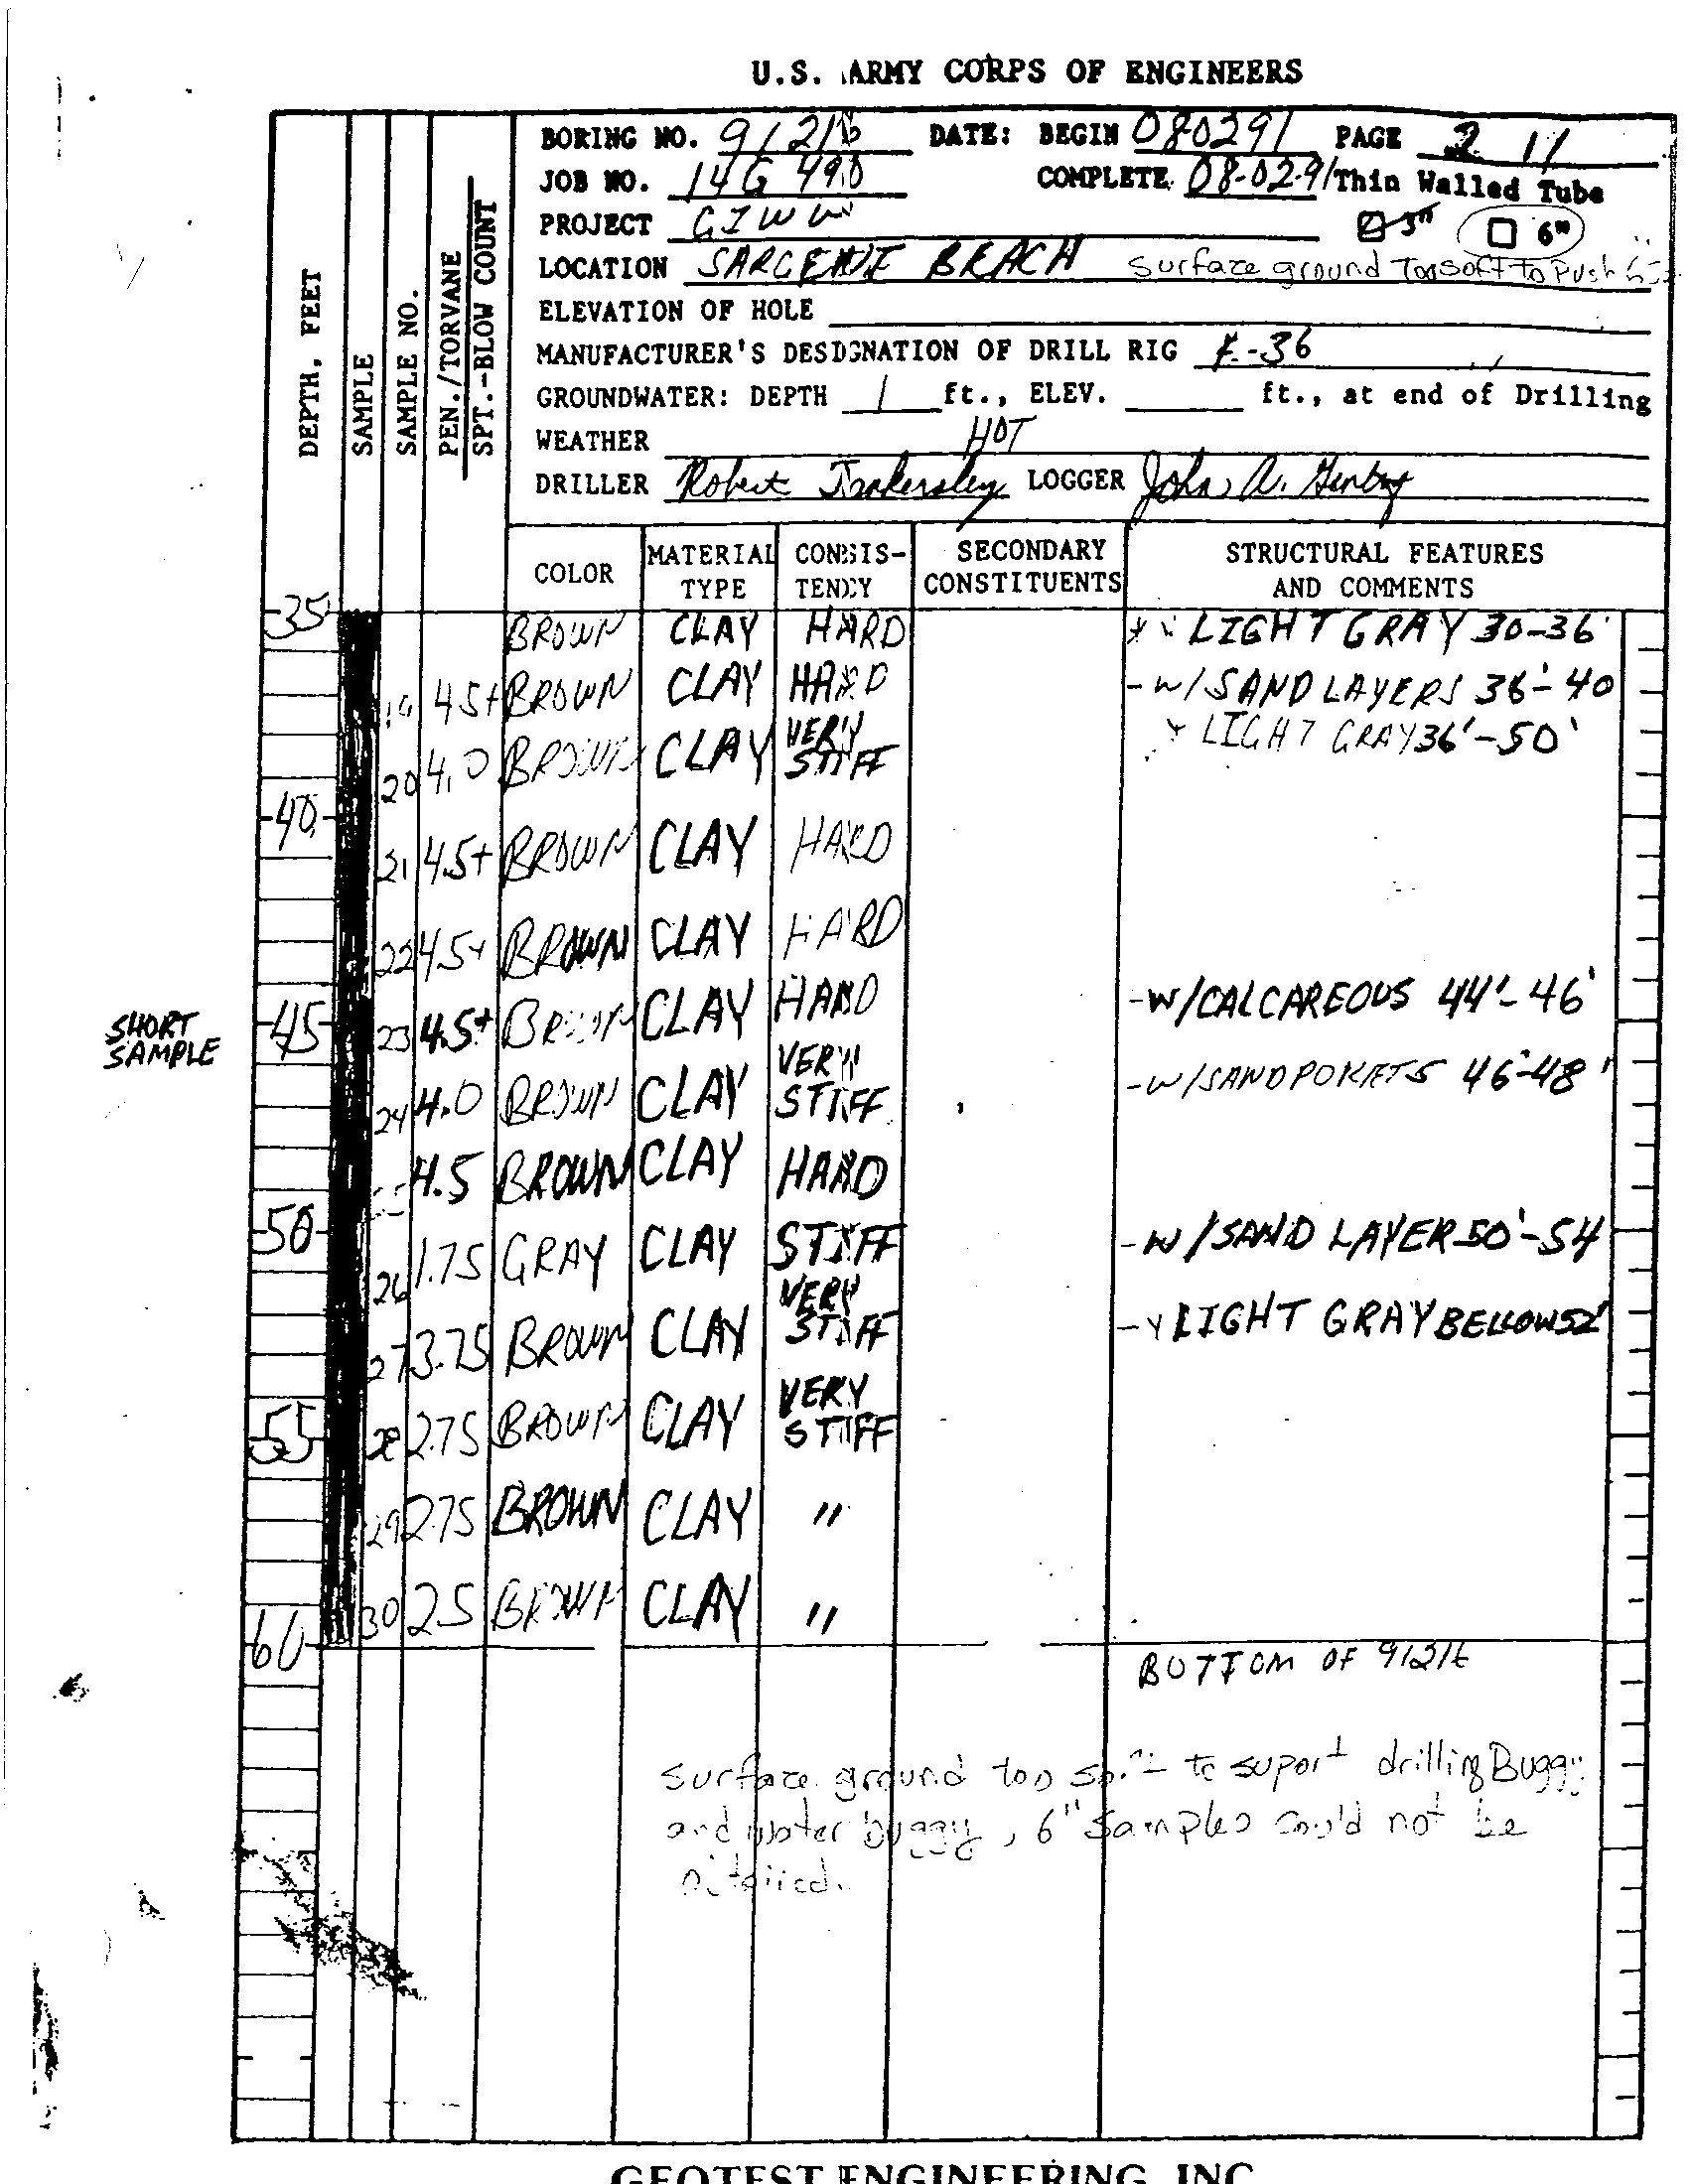 U.S. ARMY CORPS OF ENGINEERS
DEPTH, FEET
SAMPLE
SAMPLE NO.
PEN./TORVANE
SPT.-BLOW COUNT
BORING NO. DATE: BEGIN 080291 PAGE 2
JOB NO. 14G 490 COMPLETE 08-02-91 Thin Walled Tube
PROJECT GIWW 3" 6"
LOCATION BEACH Surface ground Too soft To Push
ELEVATION OF HOLE
MANUFACTURER'S DESIGNATION OF DRILL RIG -36
GROUNDWATER: DEPTH 1 ft., ELEV. ft., at end of Drilling
WEATHER HOT
DRILLER Robert LOGGER John A.
COLOR MATERIAL TYPE CONSISTENCY SECONDARY CONSTITUENTS STRUCTURAL FEATURES AND COMMENTS
35 BROWN CLAY HARD LIGHT GRAY 30-36'
19 4.5+ BROWN CLAY HARD -W/SAND LAYERS 36'-40
20 4.0 BROWN CLAY VERY STIFF LIGHT GRAY 36'-50'
40
21 4.5+ BROWN CLAY HARD
22 4.5+ BROWN CLAY HARD
SHORT SAMPLE
45 23 4.5+ BROWN CLAY HARD -W/CALCAREOUS 44'-46'
24 4.0 BROWN CLAY VERY STIFF -W/SAND POKETS 46'-48'
4.5 BROWN CLAY HARD
50
26 1.75 GRAY CLAY STIFF -W/SAND LAYER 50'-54
27 3.75 BROWN CLAY VERY STIFF -Y LIGHT GRAY BELLOW 52'
55 28 2.75 BROWN CLAY VERY STIFF
29 2.75 BROWN CLAY "
30 2.5 BROWN CLAY "
60 BOTTOM OF
Surface ground too soft to suport drilling Buggy
and water buggy, 6" Samples could not be
GEOTEST ENGINEERING, INC.